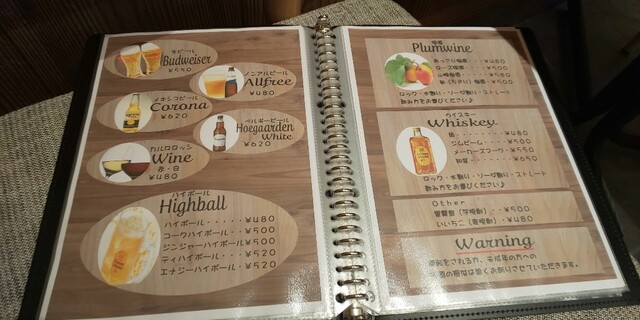 生ビール
Budweiser
¥550
ノンアルビール
Allfree
¥480
メキシコビール
Corona
¥620
ベルギービール
Hoegaarden
White
¥620
カルロロッシ
Wine
赤・白
¥480
ハイボール
Highball
ハイボール・・・・・¥480
コークハイボール・・¥500
ジンジャーハイボール¥500
ティハイボール・・・¥520
エナジーハイボール・¥520
梅酒
Plumwine
あっさり梅酒・・・¥480
ローズ梅酒・・・・¥500
山崎梅酒・・・・・¥580
ロック・水割り・ソーダ割り・ストレート
飲み方をお選びください♪
ウイスキー
Whiskey
角・・・・・・・・¥480
ジムビーム・・・・¥500
メーカーズマーク・・¥550
知多・・・・・・・¥650
ロック・水割り・ソーダ割り・ストレート
飲み方をお選びください♪
Other
(芋焼酎)・・¥500
いいちこ(麦焼酎)・・¥480
Warning
運転をされる方、未成年の方への
酒類の提供は固くお断りさせていただきます。